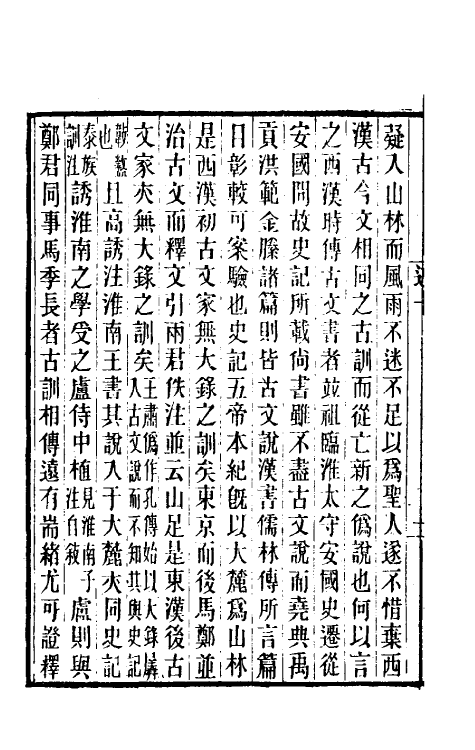 疑入山林而風雨不迷不足以爲聖人遂不惜棄西
漢古今文相同之古訓而從亡新之僞說也何以言
之西漢時傳古文書者竝祖臨淮太守安國史遷從
安國問故史記所載尚書雖不盡古文說而堯典禹
貢洪範金縢諸篇則皆古文說漢書儒林傳所言篇
目彰較可案驗也史記五帝本紀旣以大麓爲山林
是西漢初古文家無大錄之訓矣東京而後馬鄭並
治古文而釋文引兩君佚注並云山足是東漢後古
文家亦無大錄之訓矣王肅僞作孔傳始以大錄爲古文說而不知其與史記
也㪍且高誘注淮南王書其說入于大麓亦同史記
泰族訓注誘淮南之學受之盧侍中植見淮南子注自敘盧則與
鄭君同事馬季長者古訓相傳遠有耑緒尤可證釋